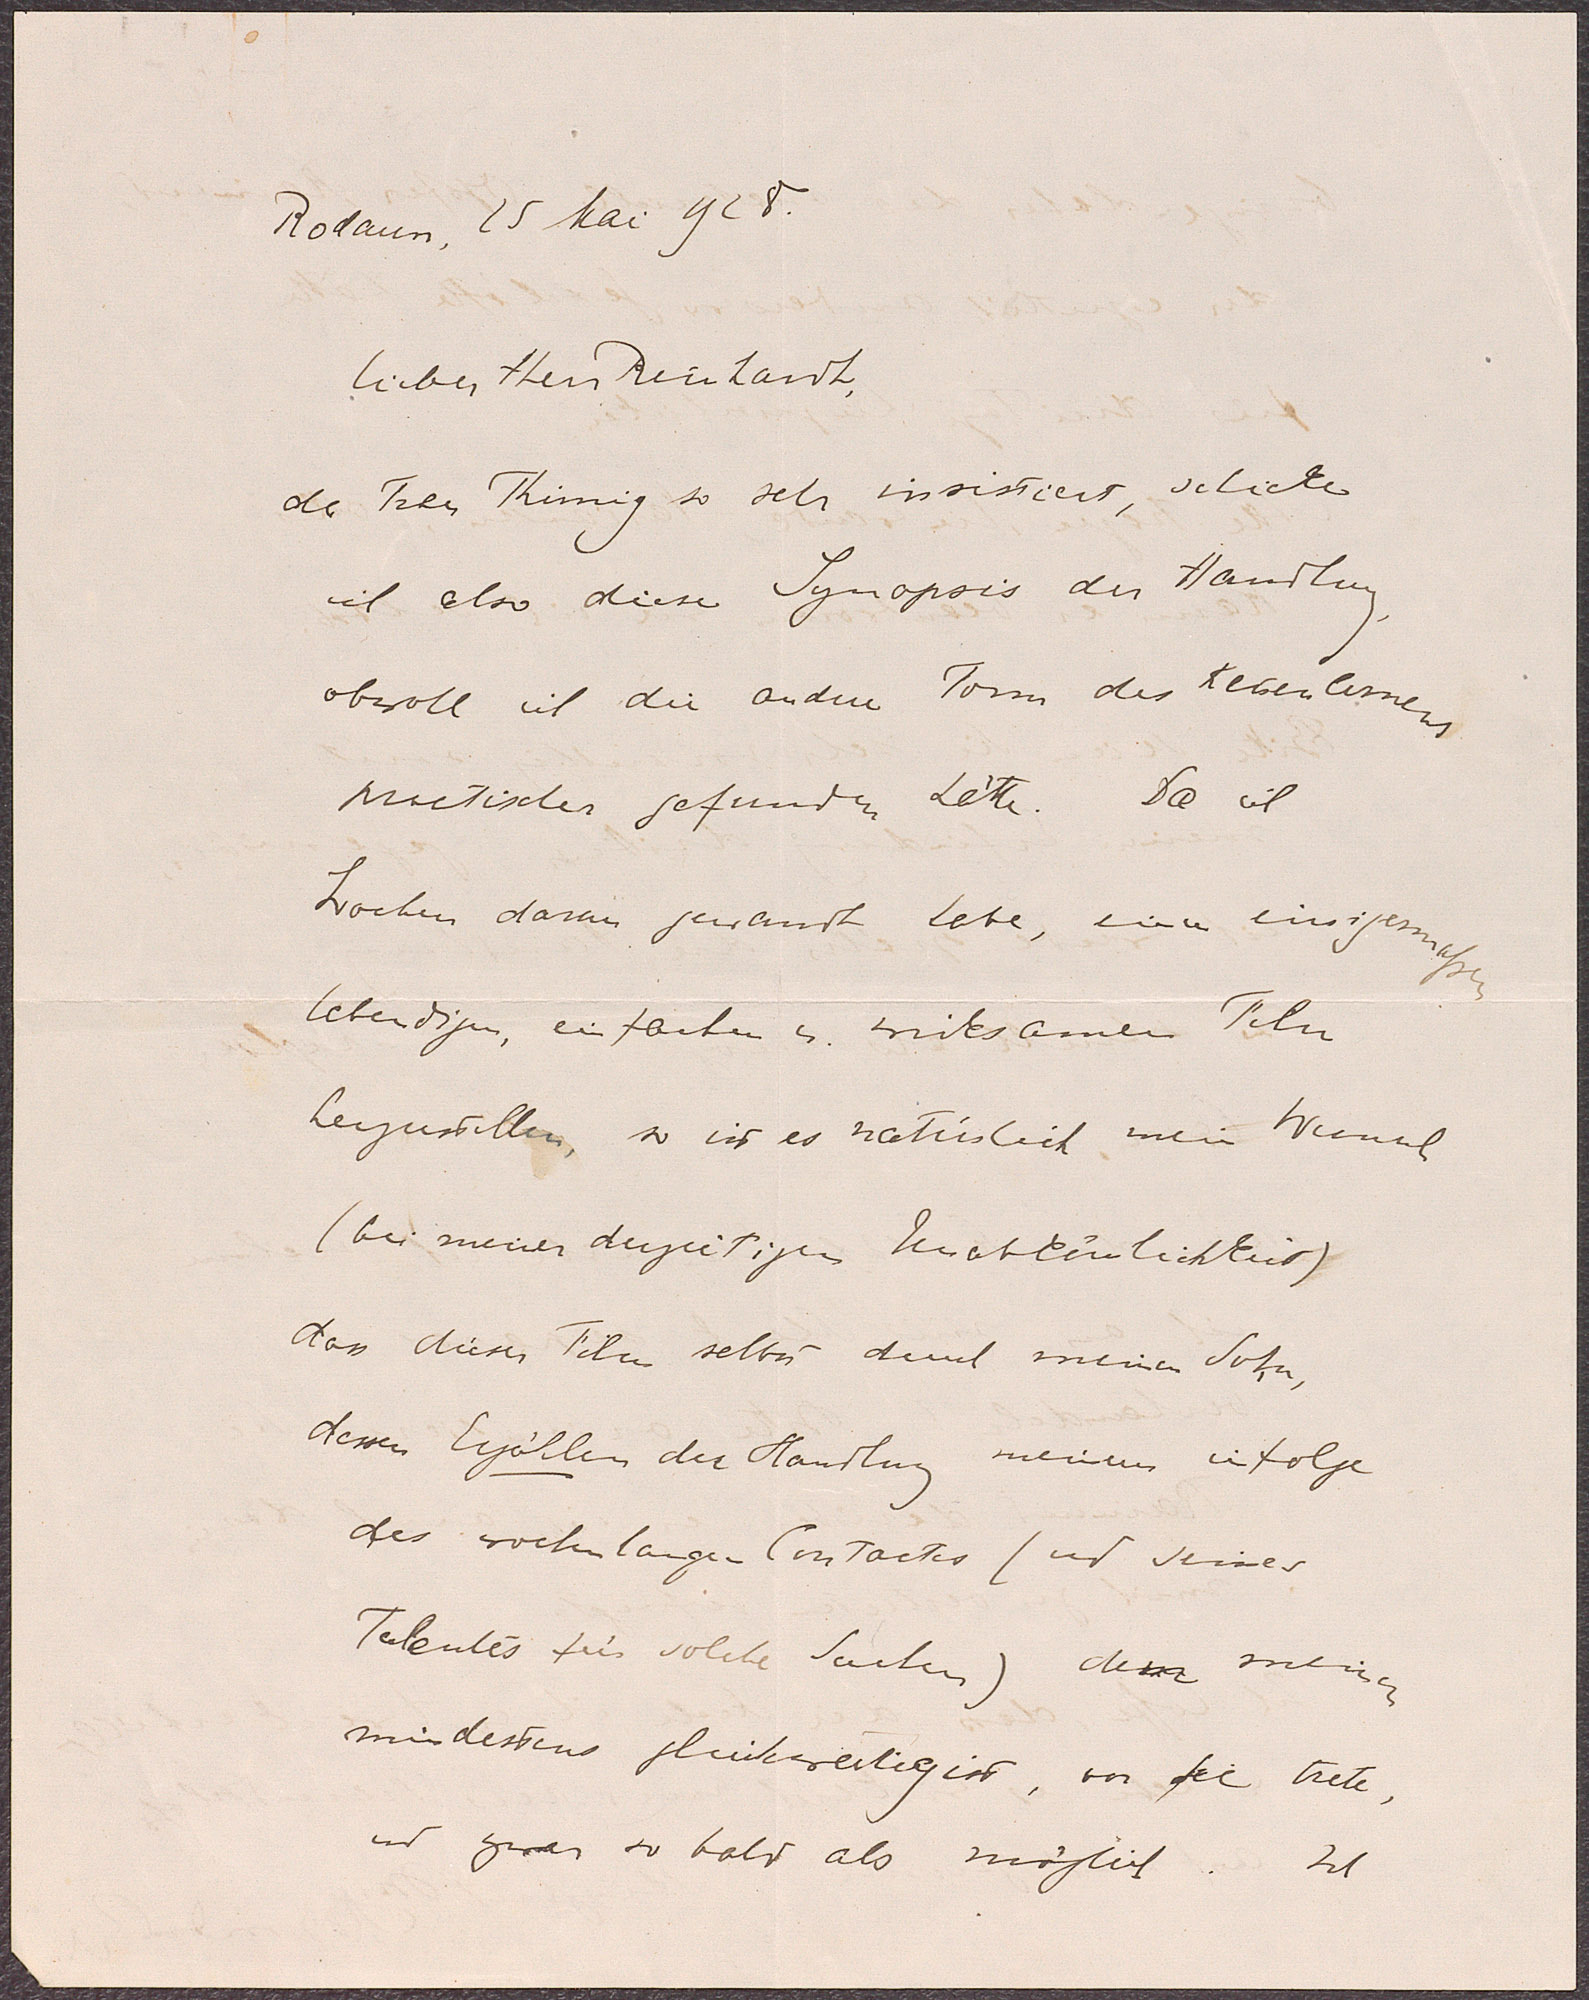 Rodaun, 25 Mai 928.
lieber Herr Reinhardt,
da Frau Thimig so sehr insistiert, schicke
ich also diese Synopsis der Handlung,
obwohl ich die andere Form des Kennenlernens
practischer gefunden hätte. Da ich
Wochen daran gewandt habe, einen einigermaßen
lebendigen, einfachen u. wirksamen Film
herzustellen, so ist es natürlich mein Wunsch
(bei meiner derzeitigen Unabkömlichkeit)
dass dieser Film selbst durch meinen Sohn,
dessen Erzählen der Handlung meinem infolge
des wochenlangen Contactes (und seines
Talentes für solche Sachen) dem meinen
mindestens gleichwertig ist, vor Sie trete,
und zwar so bald als möglich. Ich